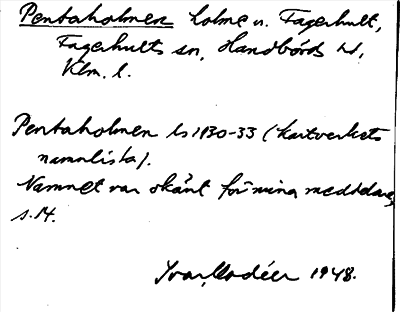 Pentaholmen holme v. Fagerhult,
Fagerhults sn, Handbörds hd,
Klm. l.
Pentaholmen ls 1930-33 (kartverkets
namnlista).
Namnet var okänt för mina meddelare,
s. 14.
Ivar Modéer 1948.